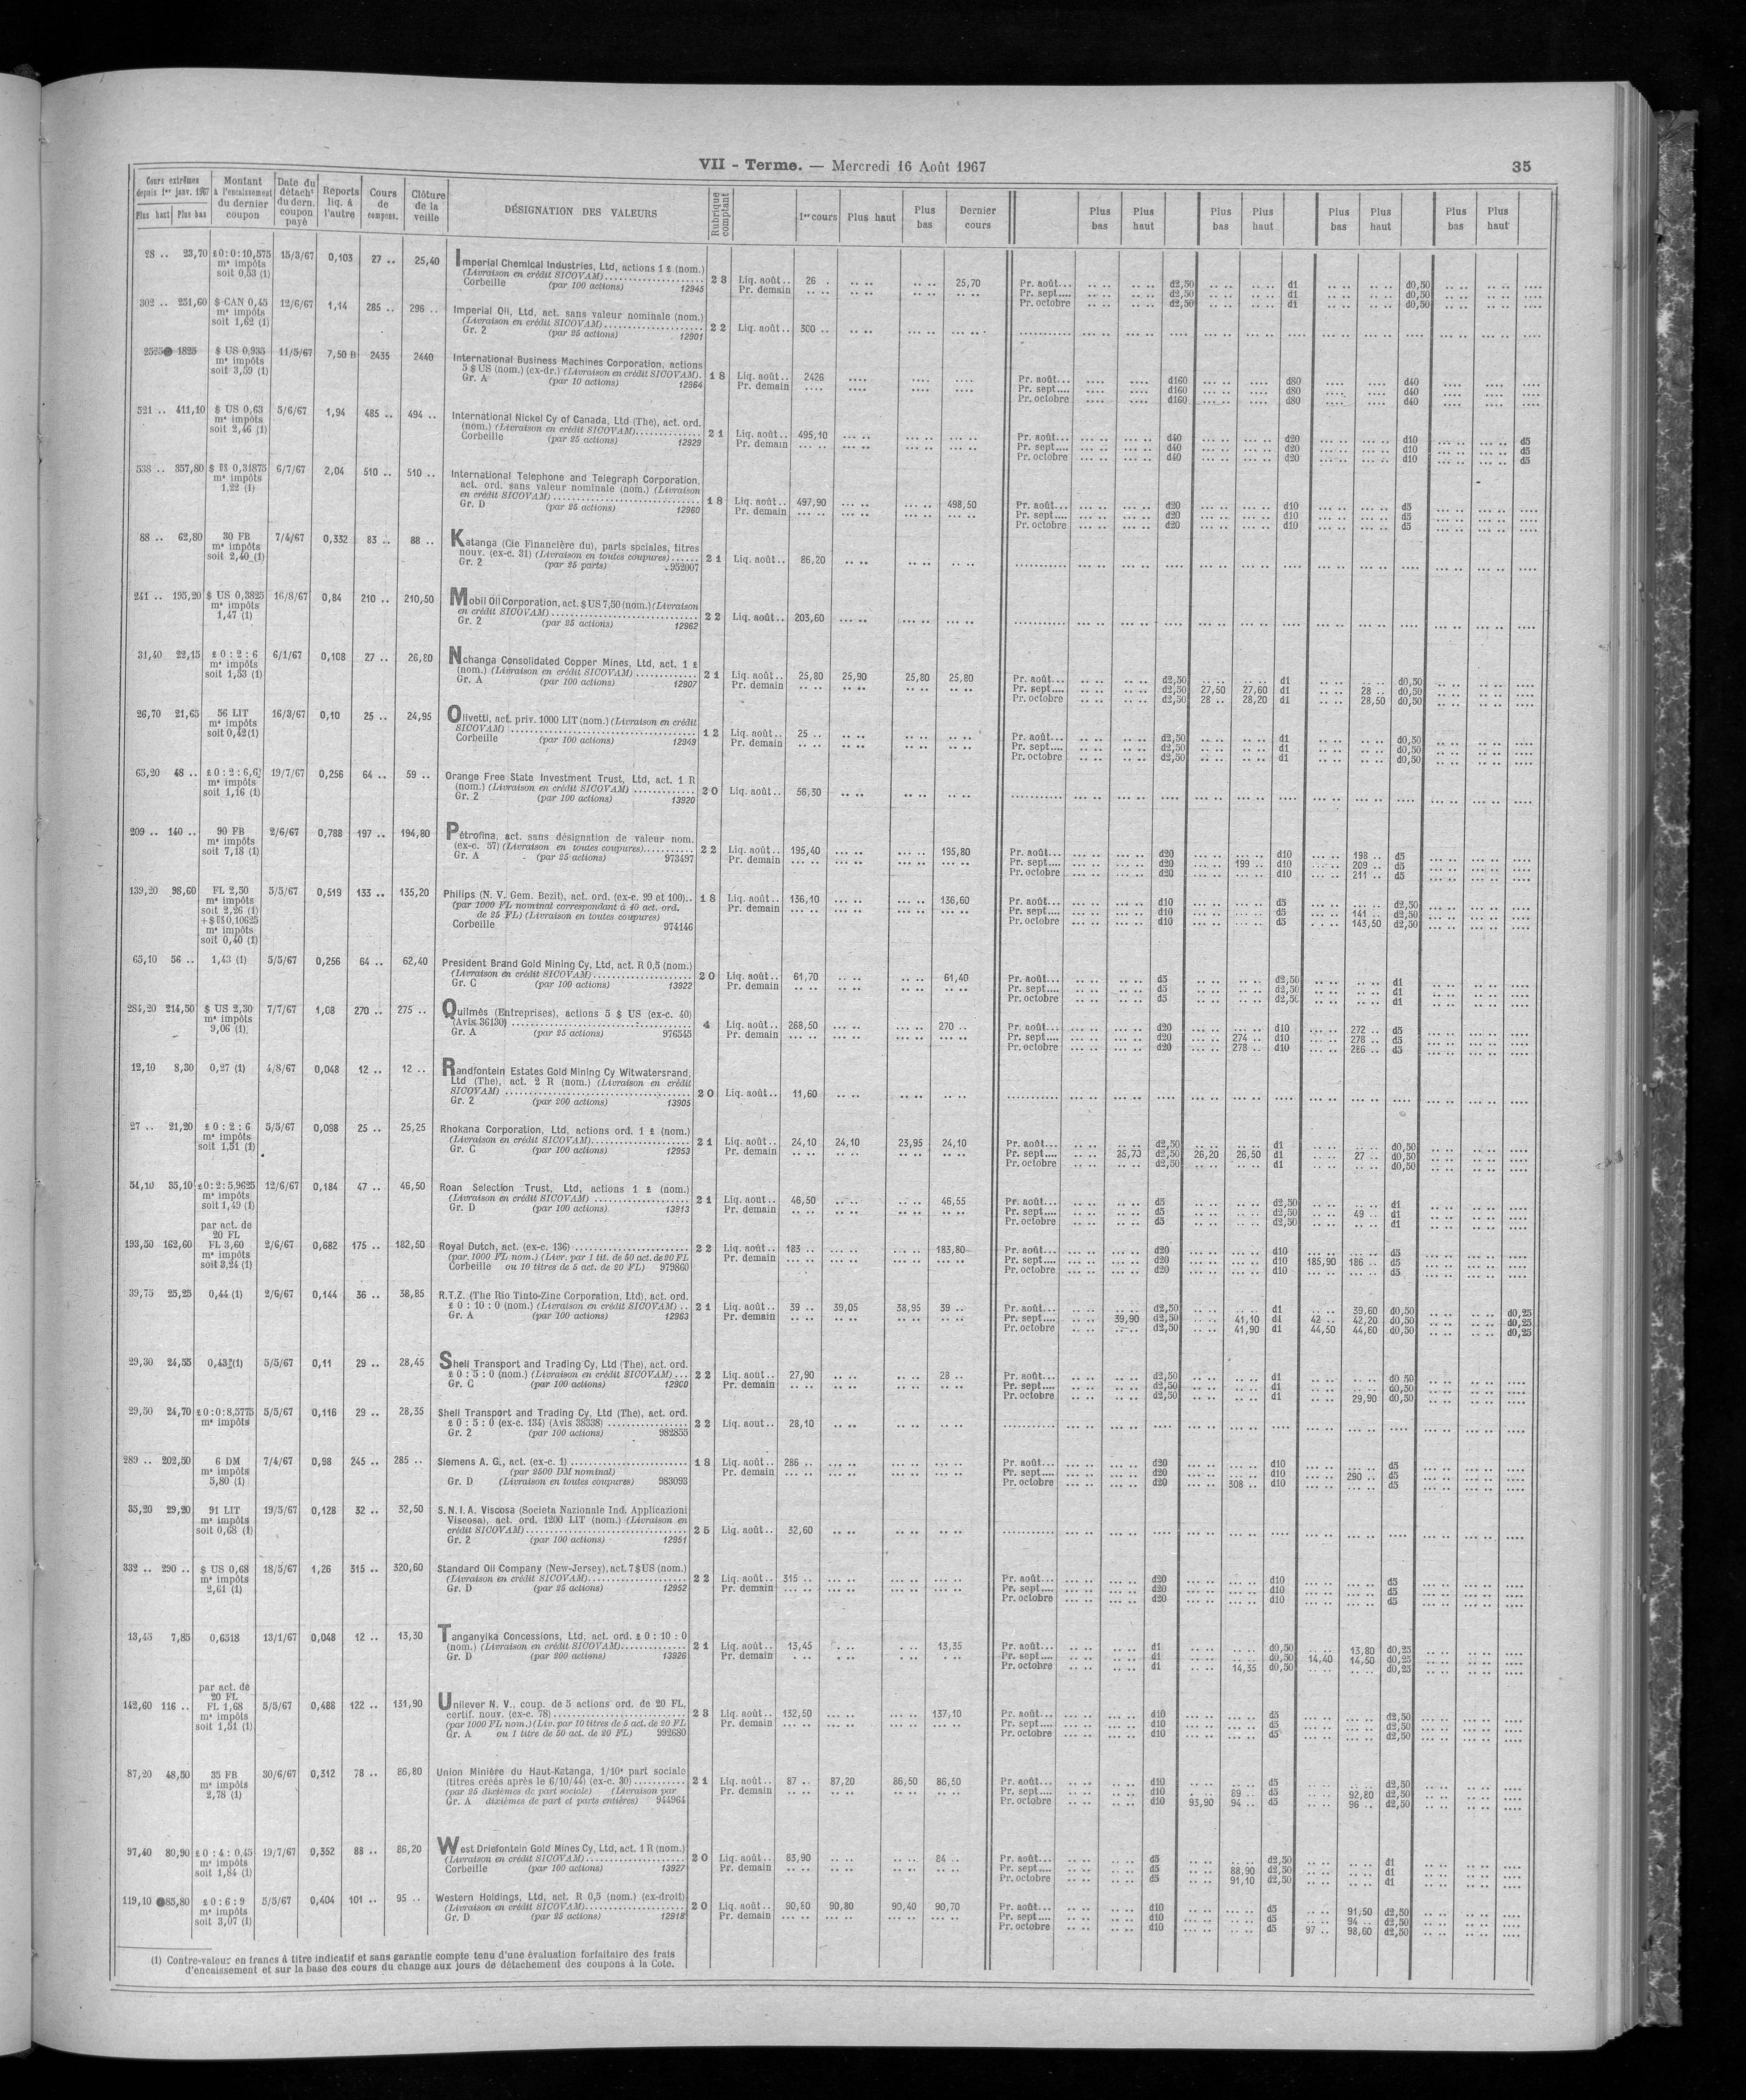 VII - Terme. — Mercredi 16 Août 1967
35
Cours extrêmes depuis 1er janv. 1967 Plus haut Plus bas
Montant à l'encaissement du dernier coupon
Date du détacht du dern. coupon payé
Reports liq. à l'autre
Cours de compens.
Clôture de la veille
DÉSIGNATION DES VALEURS
Rubrique comptant
1er cours Plus haut Plus bas Dernier cours
Plus bas Plus haut Plus bas Plus haut Plus bas Plus haut Plus bas Plus haut
28 .. 23,70 £0:0:10,575 15/3/67 0,103 27 .. 25,40 Imperial Chemical Industries, Ltd, actions 1 £ (nom.)
ms impôts (Livraison en crédit SICOVAM)
soit 0,53 (1) Corbeille (par 100 actions) 12945 28 Liq. août.. 26 . 25,70 Pr. août... d2,50 d1 d0,50
Pr. demain Pr. sept.... d2,50 d1 d0,50
Pr. octobre d2,50 d1 d0,50
302 .. 251,60 $ CAN 0,45 12/6/67 1,14 285 .. 296 .. Imperial Oil, Ltd, act. sans valeur nominale (nom.)
ms impôts (Livraison en crédit SICOVAM)
soit 1,62 (1) Gr. 2 (par 25 actions) 12901 22 Liq. août.. 300 ..
2525 1825 $ US 0,935 11/5/67 7,50 B 2435 2440 International Business Machines Corporation, actions
ms impôts 5 $ US (nom.) (ex-dr.) (Livraison en crédit SICOVAM).
soit 3,59 (1) Gr. A (par 10 actions) 12964 18 Liq. août.. 2426 Pr. août... d160 d80 d40
Pr. demain Pr. sept.... d160 d80 d40
Pr. octobre d160 d80 d40
521 .. 411,10 $ US 0,63 5/6/67 1,94 485 .. 494 .. International Nickel Cy of Canada, Ltd (The), act. ord.
ms impôts (nom.) (Livraison en crédit SICOVAM)
soit 2,46 (1) Corbeille (par 25 actions) 12929 21 Liq. août.. 495,10 Pr. août... d40 d20 d10 d5
Pr. demain Pr. sept.... d40 d20 d10 d5
Pr. octobre d40 d20 d10 d5
538 .. 357,80 $ US 0,31875 6/7/67 2,04 510 .. 510 .. International Telephone and Telegraph Corporation,
ms impôts act. ord. sans valeur nominale (nom.) (Livraison
1,22 (1) en crédit SICOVAM)
Gr. D (par 25 actions) 12960 18 Liq. août.. 497,90 498,50 Pr. août... d20 d10 d5
Pr. demain Pr. sept.... d20 d10 d5
Pr. octobre d20 d10 d5
88 .. 62,80 30 FB 7/4/67 0,332 83 .. 88 .. Katanga (Cie Financière du), parts sociales, titres
ms impôts nouv. (ex-c. 31) (Livraison en toutes coupures)
soit 2,40 (1) Gr. 2 (par 25 parts) 952007 21 Liq. août.. 86,20
241 .. 195,20 $ US 0,3825 16/8/67 0,84 210 .. 210,50 Mobil Oil Corporation, act. $ US 7,50 (nom.) (Livraison
ms impôts en crédit SICOVAM)
1,47 (1) Gr. 2 (par 25 actions) 12962 22 Liq. août.. 203,60
31,40 22,15 £ 0 : 2 : 6 6/1/67 0,108 27 .. 26,80 Nchanga Consolidated Copper Mines, Ltd, act. 1 £
ms impôts (nom.) (Livraison en crédit SICOVAM)
soit 1,53 (1) Gr. A (par 100 actions) 12907 21 Liq. août.. 25,80 25,90 25,80 25,80 Pr. août... d2,50 d1 d0,50
Pr. demain Pr. sept.... d2,50 27,50 27,60 d1 28 .. d0,50
Pr. octobre d2,50 28 .. 28,20 d1 28,50 d0,50
26,70 21,65 56 LIT 16/3/67 0,10 25 .. 24,95 Olivetti, act. priv. 1000 LIT (nom.) (Livraison en crédit
ms impôts SICOVAM)
soit 0,42 (1) Corbeille (par 100 actions) 12949 12 Liq. août.. 25 .. Pr. août... d2,50 d1 d0,50
Pr. demain Pr. sept.... d2,50 d1 d0,50
Pr. octobre d2,50 d1 d0,50
65,20 48 .. £ 0 : 2 : 6,6 19/7/67 0,256 64 .. 59 .. Orange Free State Investment Trust, Ltd, act. 1 R
ms impôts (nom.) (Livraison en crédit SICOVAM)
soit 1,16 (1) Gr. 2 (par 100 actions) 13920 20 Liq. août.. 56,30
209 .. 140 .. 90 FB 2/6/67 0,788 197 .. 194,80 Pétrofina, act. sans désignation de valeur nom.
ms impôts (ex-c. 57) (Livraison en toutes coupures)
soit 7,18 (1) Gr. A (par 25 actions) 973497 22 Liq. août.. 195,40 195,80 Pr. août... d20 d10 198 .. d5
Pr. demain Pr. sept.... d20 199 .. d10 209 .. d5
Pr. octobre d20 d10 211 .. d5
139,20 98,60 FL 2,50 5/5/67 0,519 133 .. 135,20 Philips (N. V. Gem. Bezit), act. ord. (ex-c. 99 et 100).. 18 Liq. août.. 136,10 136,60 Pr. août... d10 d5 d2,50
ms impôts (par 1000 FL nominal correspondant à 40 act. ord. Pr. demain Pr. sept.... d10 d5 141 .. d2,50
soit 2,26 (1) de 25 FL) (Livraison en toutes coupures) Pr. octobre d10 d5 143,50 d2,50
+ $ US 0,10625 Corbeille 974146
ms impôts
soit 0,40 (1)
65,10 56 .. 1,43 (1) 5/5/67 0,256 64 .. 62,40 President Brand Gold Mining Cy, Ltd, act. R 0,5 (nom.)
(Livraison en crédit SICOVAM) 20 Liq. août.. 61,70 61,40 Pr. août... d5 d2,50 d1
Gr. C (par 100 actions) 13922 Pr. demain Pr. sept.... d5 d2,50 d1
Pr. octobre d5 d2,50 d1
284,20 214,50 $ US 2,30 7/7/67 1,08 270 .. 275 .. Quilmès (Entreprises), actions 5 $ US (ex-c. 40)
ms impôts (Avis 36130) 4 Liq. août.. 268,50 270 .. Pr. août... d20 d10 272 .. d5
9,06 (1) Gr. A (par 25 actions) 976545 Pr. demain Pr. sept.... d20 274 .. d10 278 .. d5
Pr. octobre d20 278 .. d10 286 .. d5
12,10 8,30 0,27 (1) 4/8/67 0,048 12 .. 12 .. Randfontein Estates Gold Mining Cy Witwatersrand,
Ltd (The), act. 2 R (nom.) (Livraison en crédit
SICOVAM) 20 Liq. août.. 11,60
Gr. 2 (par 200 actions) 13905
27 .. 21,20 £ 0 : 2 : 6 5/5/67 0,098 25 .. 25,25 Rhokana Corporation, Ltd, actions ord. 1 £ (nom.)
ms impôts (Livraison en crédit SICOVAM) 21 Liq. août.. 24,10 24,10 23,95 24,10 Pr. août... d2,50 d1 d0,50
soit 1,51 (1) Gr. C (par 100 actions) 12953 Pr. demain Pr. sept.... 25,70 d2,50 26,20 26,50 d1 27 .. d0,50
Pr. octobre d2,50 d1 d0,50
54,10 35,10 £0:2:5,9625 12/6/67 0,184 47 .. 46,50 Roan Selection Trust, Ltd, actions 1 £ (nom.)
ms impôts (Livraison en crédit SICOVAM) 21 Liq. aout.. 46,50 46,55 Pr. août... d5 d2,50 d1
soit 1,49 (1) Gr. D (par 100 actions) 13913 Pr. demain Pr. sept.... d5 d2,50 49 .. d1
Pr. octobre d5 d2,50 d1
par act. de
20 FL
193,50 162,60 FL 3,60 2/6/67 0,682 175 .. 182,50 Royal Dutch, act. (ex-c. 136) 22 Liq. août.. 183 .. 183,80 Pr. août... d20 d10 d5
ms impôts (par 1000 FL nom.) (Livr. par 1 tit. de 50 act. de 20 FL Pr. demain Pr. sept.... d20 d10 185,90 186 .. d5
soit 3,24 (1) Corbeille ou 10 titres de 5 act. de 20 FL) 979860 Pr. octobre d20 d10 d5
39,75 25,25 0,44 (1) 2/6/67 0,144 36 .. 38,85 R.T.Z. (The Rio Tinto-Zinc Corporation, Ltd), act. ord.
£ 0 : 10 : 0 (nom.) (Livraison en crédit SICOVAM) .. 21 Liq. août.. 39 .. 39,05 38,95 39 .. Pr. août... d2,50 d1 39,60 d0,50 d0,25
Gr. A (par 100 actions) 12963 Pr. demain Pr. sept.... 39,90 d2,50 41,10 d1 42 .. 42,20 d0,50 d0,25
Pr. octobre d2,50 41,90 d1 44,50 44,60 d0,50 d0,25
29,30 24,55 0,43 (1) 5/5/67 0,11 29 .. 28,45 Shell Transport and Trading Cy, Ltd (The), act. ord.
£ 0 : 5 : 0 (nom.) (Livraison en crédit SICOVAM)... 22 Liq. août.. 27,90 28 .. Pr. août... d2,50 d1 d0 50
Gr. C (par 100 actions) 12900 Pr. demain Pr. sept.... d2,50 d1 d0,50
Pr. octobre d2,50 d1 29,90 d0,50
29,50 24,70 £0:0:8,5775 5/5/67 0,116 29 .. 28,35 Shell Transport and Trading Cy, Ltd (The), act. ord.
ms impôts £ 0 : 5 : 0 (ex-c. 134) (Avis 38338) 22 Liq. aout.. 28,10
Gr. 2 (par 100 actions) 982855
289 .. 202,50 6 DM 7/4/67 0,98 245 .. 285 .. Siemens A. G., act. (ex-c. 1) 18 Liq. août.. 286 .. Pr. août... d20 d10 d5
ms impôts (par 2500 DM nominal) Pr. demain Pr. sept.... d20 d10 290 .. d5
5,80 (1) Gr. D (Livraison en toutes coupures) 983093 Pr. octobre d20 308 .. d10 d5
35,20 29,20 91 LIT 19/5/67 0,128 32 .. 32,50 S.N.I.A. Viscosa (Societa Nazionale Ind. Applicazioni
ms impôts Viscosa), act. ord. 1200 LIT (nom.) (Livraison en
soit 0,68 (1) crédit SICOVAM) 25 Liq. août.. 32,60
Gr. 2 (par 100 actions) 12951
332 .. 290 .. $ US 0,68 18/5/67 1,26 315 .. 320,60 Standard Oil Company (New-Jersey), act. 7 $ US (nom.)
ms impôts (Livraison en crédit SICOVAM) 22 Liq. août.. 315 .. Pr. août... d20 d10 d5
2,61 (1) Gr. D (par 25 actions) 12952 Pr. demain Pr. sept.... d20 d10 d5
Pr. octobre d20 d10 d5
13,45 7,85 0,6518 13/1/67 0,048 12 .. 13,30 Tanganyika Concessions, Ltd, act. ord. £ 0 : 10 : 0
(nom.) (Livraison en crédit SICOVAM) 21 Liq. août.. 13,45 13,35 Pr. août... d1 d0,50 13,80 d0,25
Gr. D (par 200 actions) 13926 Pr. demain Pr. sept.... d1 d0,50 14,40 14,50 d0,25
Pr. octobre d1 14,35 d0,50 d0,25
par act. de
20 FL
142,60 116 .. FL 1,68 5/5/67 0,488 122 .. 131,90 Unilever N. V., coup. de 5 actions ord. de 20 FL,
ms impôts certif. nouv. (ex-c. 78) 28 Liq. août.. 132,50 137,10 Pr. août... d10 d5 d2,50
soit 1,51 (1) (par 1000 FL nom.) (Liv. par 10 titres de 5 act. de 20 FL Pr. demain Pr. sept.... d10 d5 d2,50
Gr. A ou 1 titre de 50 act. de 20 FL) 992680 Pr. octobre d10 d5 d2,50
87,20 48,50 35 FB 30/6/67 0,312 78 .. 86,80 Union Minière du Haut-Katanga, 1/10e part sociale
ms impôts (titres créés après le 6/10/44) (ex-c. 30) 21 Liq. août.. 87 .. 87,20 86,50 86,50 Pr. août... d10 d5 d2,50
2,78 (1) (par 25 dixièmes de part sociale) (Livraison par Pr. demain Pr. sept.... d10 89 .. d5 92,80 d2,50
Gr. A dixièmes de part et parts entières) 944964 Pr. octobre d10 93,90 94 .. d5 96 .. d2,50
97,40 80,90 £ 0 : 4 : 0,45 19/7/67 0,352 88 .. 86,20 West Driefontein Gold Mines Cy, Ltd, act. 1 R (nom.)
ms impôts (Livraison en crédit SICOVAM) 20 Liq. août.. 83,90 84 .. Pr. août... d5 d2,50 d1
soit 1,84 (1) Corbeille (par 100 actions) 13927 Pr. demain Pr. sept.... d5 88,90 d2,50 d1
Pr. octobre d5 91,10 d2,50 d1
119,10 85,80 £ 0 : 6 : 9 5/5/67 0,404 101 .. 95 .. Western Holdings, Ltd, act. R 0,5 (nom.) (ex-droit)
ms impôts (Livraison en crédit SICOVAM) 20 Liq. août.. 90,80 90,80 90,40 90,70 Pr. août... d10 d5 91,50 d2,50
soit 3,07 (1) Gr. D (par 25 actions) 12918 Pr. demain Pr. sept.... d10 d5 94 .. d2,50
Pr. octobre d10 d5 97 .. 98,60 d2,50
(1) Contre-valeur en francs à titre indicatif et sans garantie compte tenu d'une évaluation forfaitaire des frais
d'encaissement et sur la base des cours du change aux jours de détachement des coupons à la Cote.